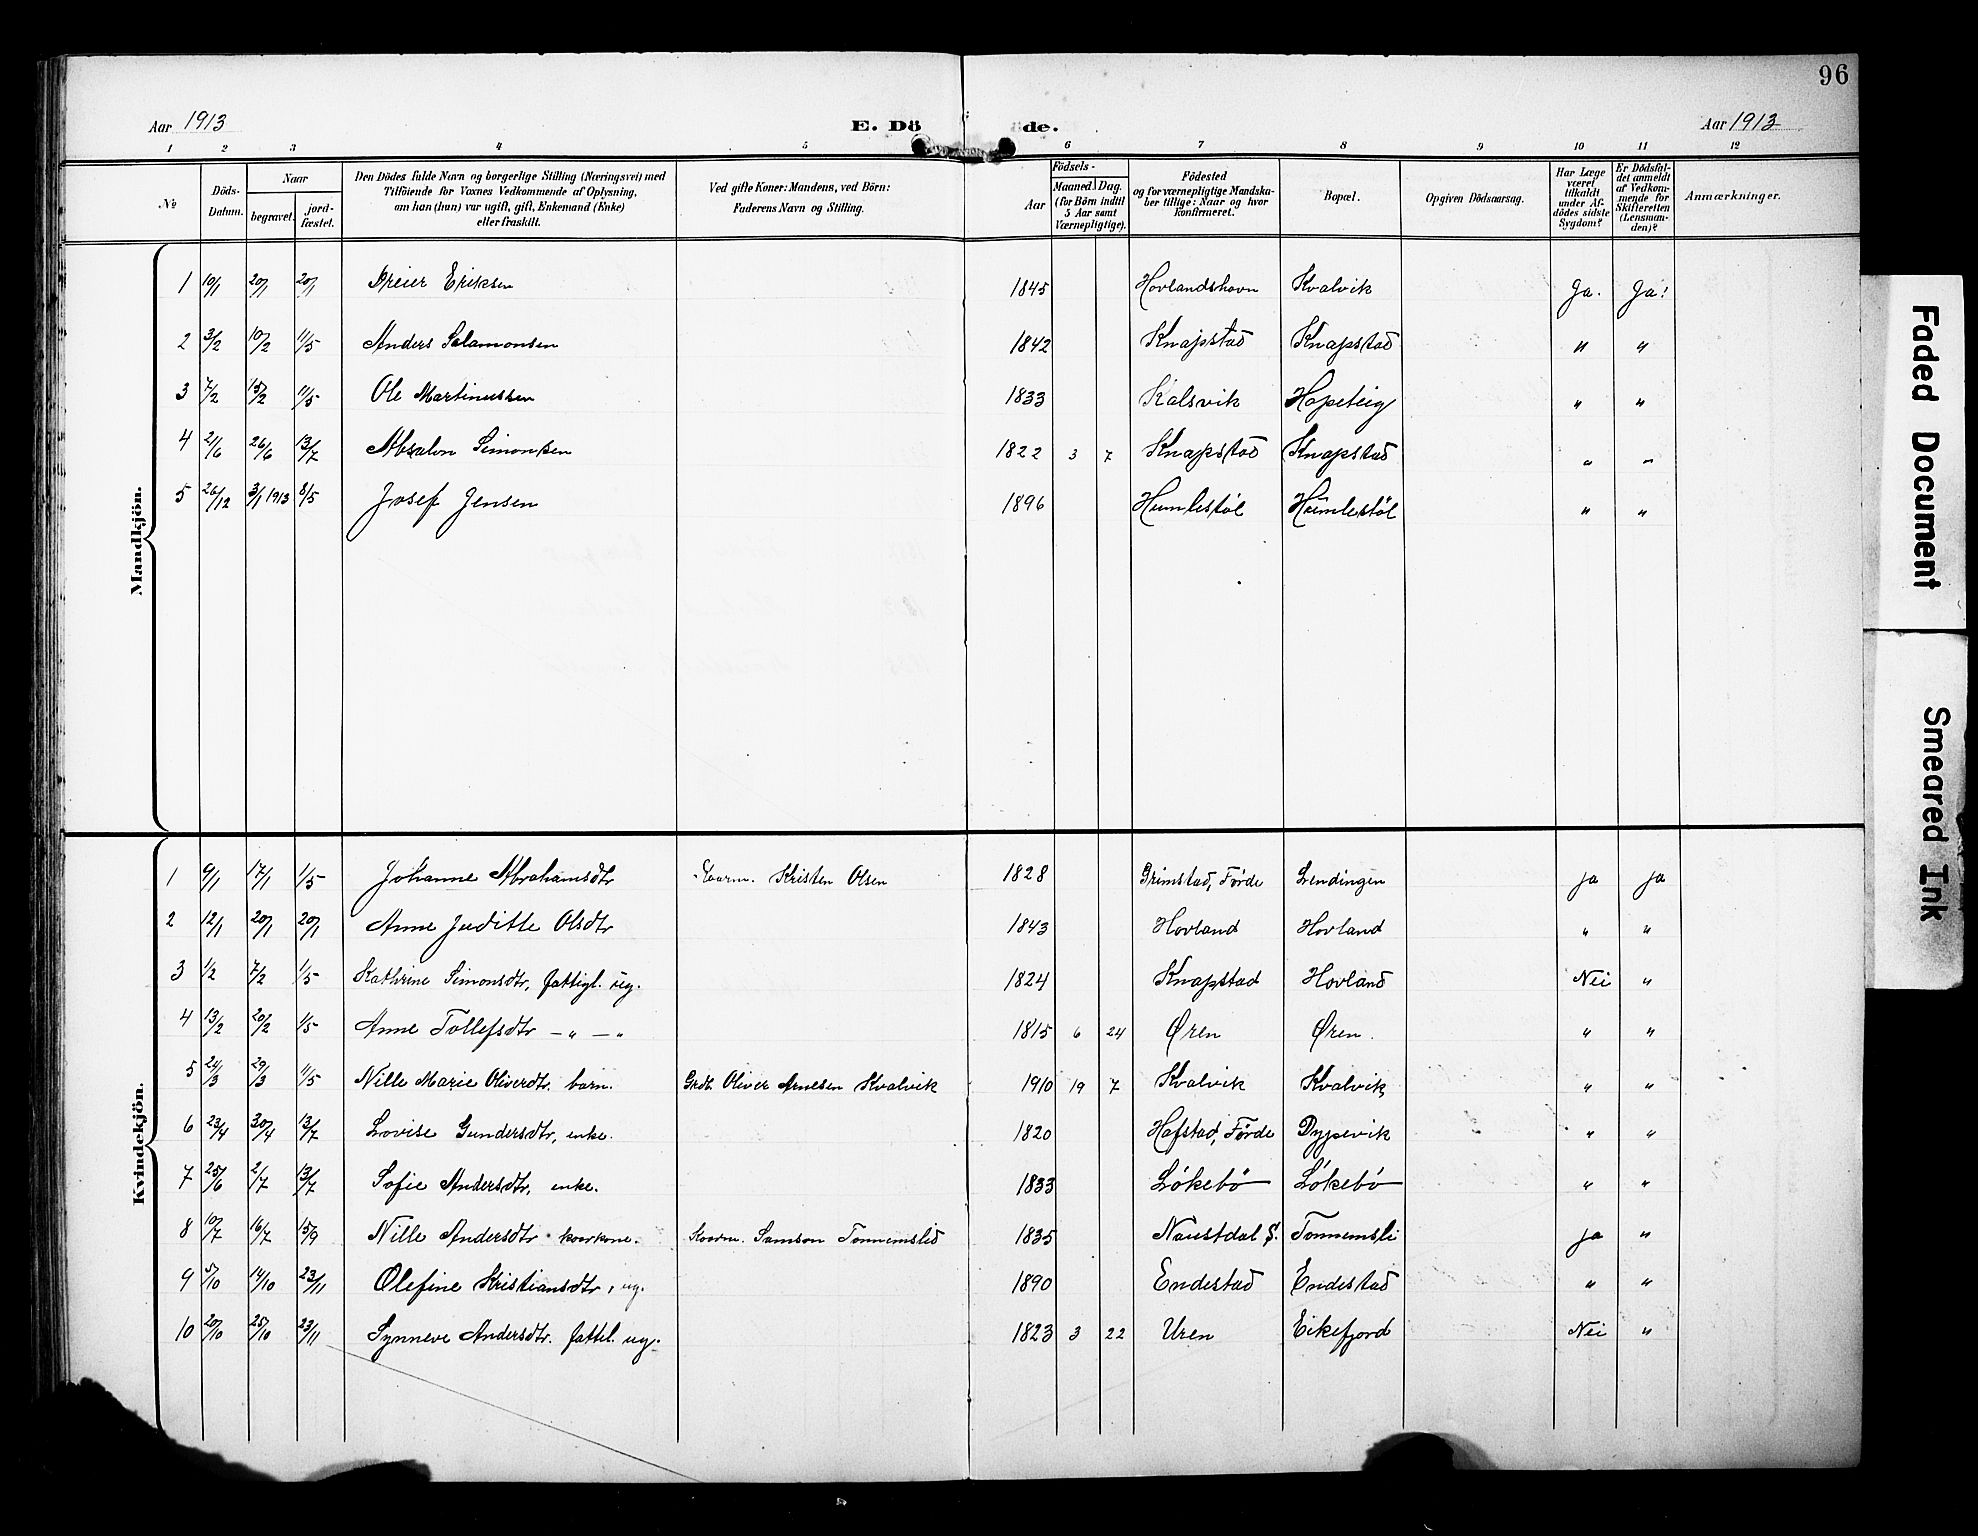 96
Aar 1913 E. Dö de. Aar 1913
1 2 3 4 5 6 7 8 9 10 11 12
№ Döds-Datum. Naar begravet. jord-fæstet. Den Dödes fulde Navn og borgerlige Stilling (Næringsvei) med Tilföiende for Voxnes Vedkommende af Oplysning, om han (hun) var ugift, gift, Enkemand (Enke) eller fraskilt. Ved gifte Koner: Mandens, ved Börn: Faderens Navn og Stilling. Födsels- Aar Maaned. Dag. (for Börn indtil 5 Aar samt Værnepligtige). Födested og for værnepligtige Mandska-ber tillige: Naar og hvor konfirmeret. Bopæl. Opgiven Dödsaarsag. Har Læge været tilkaldt under Af-dödes sidste Sygdom? Er Dödsfal-det anmeldt af Vedkom-mende for Skifteretten (Lensman-den)? Anmærkninger.
Mandkjön.
1 10/1 20/1 20/1 Dreier Eriksen 1845 Hovlandshavn Kvalvik Ja. Ja!
2 3/2 10/2 11/5 Anders Salamonsen 1842 Knapstad Knapstad " "
3 7/2 15/2 11/5 Ole Martinussen 1833 Kalsvik Hopeteig " "
4 21/6 26/6 13/7 Absalon Simonsen 1822 3 7 Knapstad Knapstad " "
5 26/12 3/1 1913 8/5 Josef Jensen 1896 Humlestøl Humlestøl " "
Kvindekjön.
1 9/1 17/1 1/5 Johanne Abrahamsdtr Kristen Olsen 1828 Grimstad, Førde Lendingen ja ja
2 12/1 20/1 20/1 Anne Juditte Olsdtr 1843 Hovland Hovland " "
3 1/2 7/2 1/5 Kathrine Simonsdtr, fattigl. ug. 1824 Knapstad Hovland Nei "
4 13/2 20/2 1/5 Anne Tollefsdtr — " — " 1815 6 24 Øren Øren. " "
5 24/3 29/3 11/5 Nille Marie Oliverdtr. barn. Grdb. Oliver Arnesen Kvalvik 1910 19 7 Kvalvik Kvalvik " "
6 23/4 30/4 13/7 Lovise Gundersdtr, enke. 1820 Hafstad, Førde Dypevik " "
7 25/6 2/7 13/7 Sofie Andersdtr, enke. 1833 Løkebø Løkebø " "
8 10/7 16/7 15/9 Nille Andersdtr kaarkone. Kaarm. Samson Tonnemslid 1835 Naustdal S. Tonnemsli ja "
9 5/10 14/10 23/11 Olefine Kristiansdtr, ug. 1890 Endestad Endestad " "
10 20/10 25/10 23/11 Synneve Andersdtr. fattl. ug. 1823 3 22 Uren Eikefjord Nei "
Faded Document
Smeared Ink